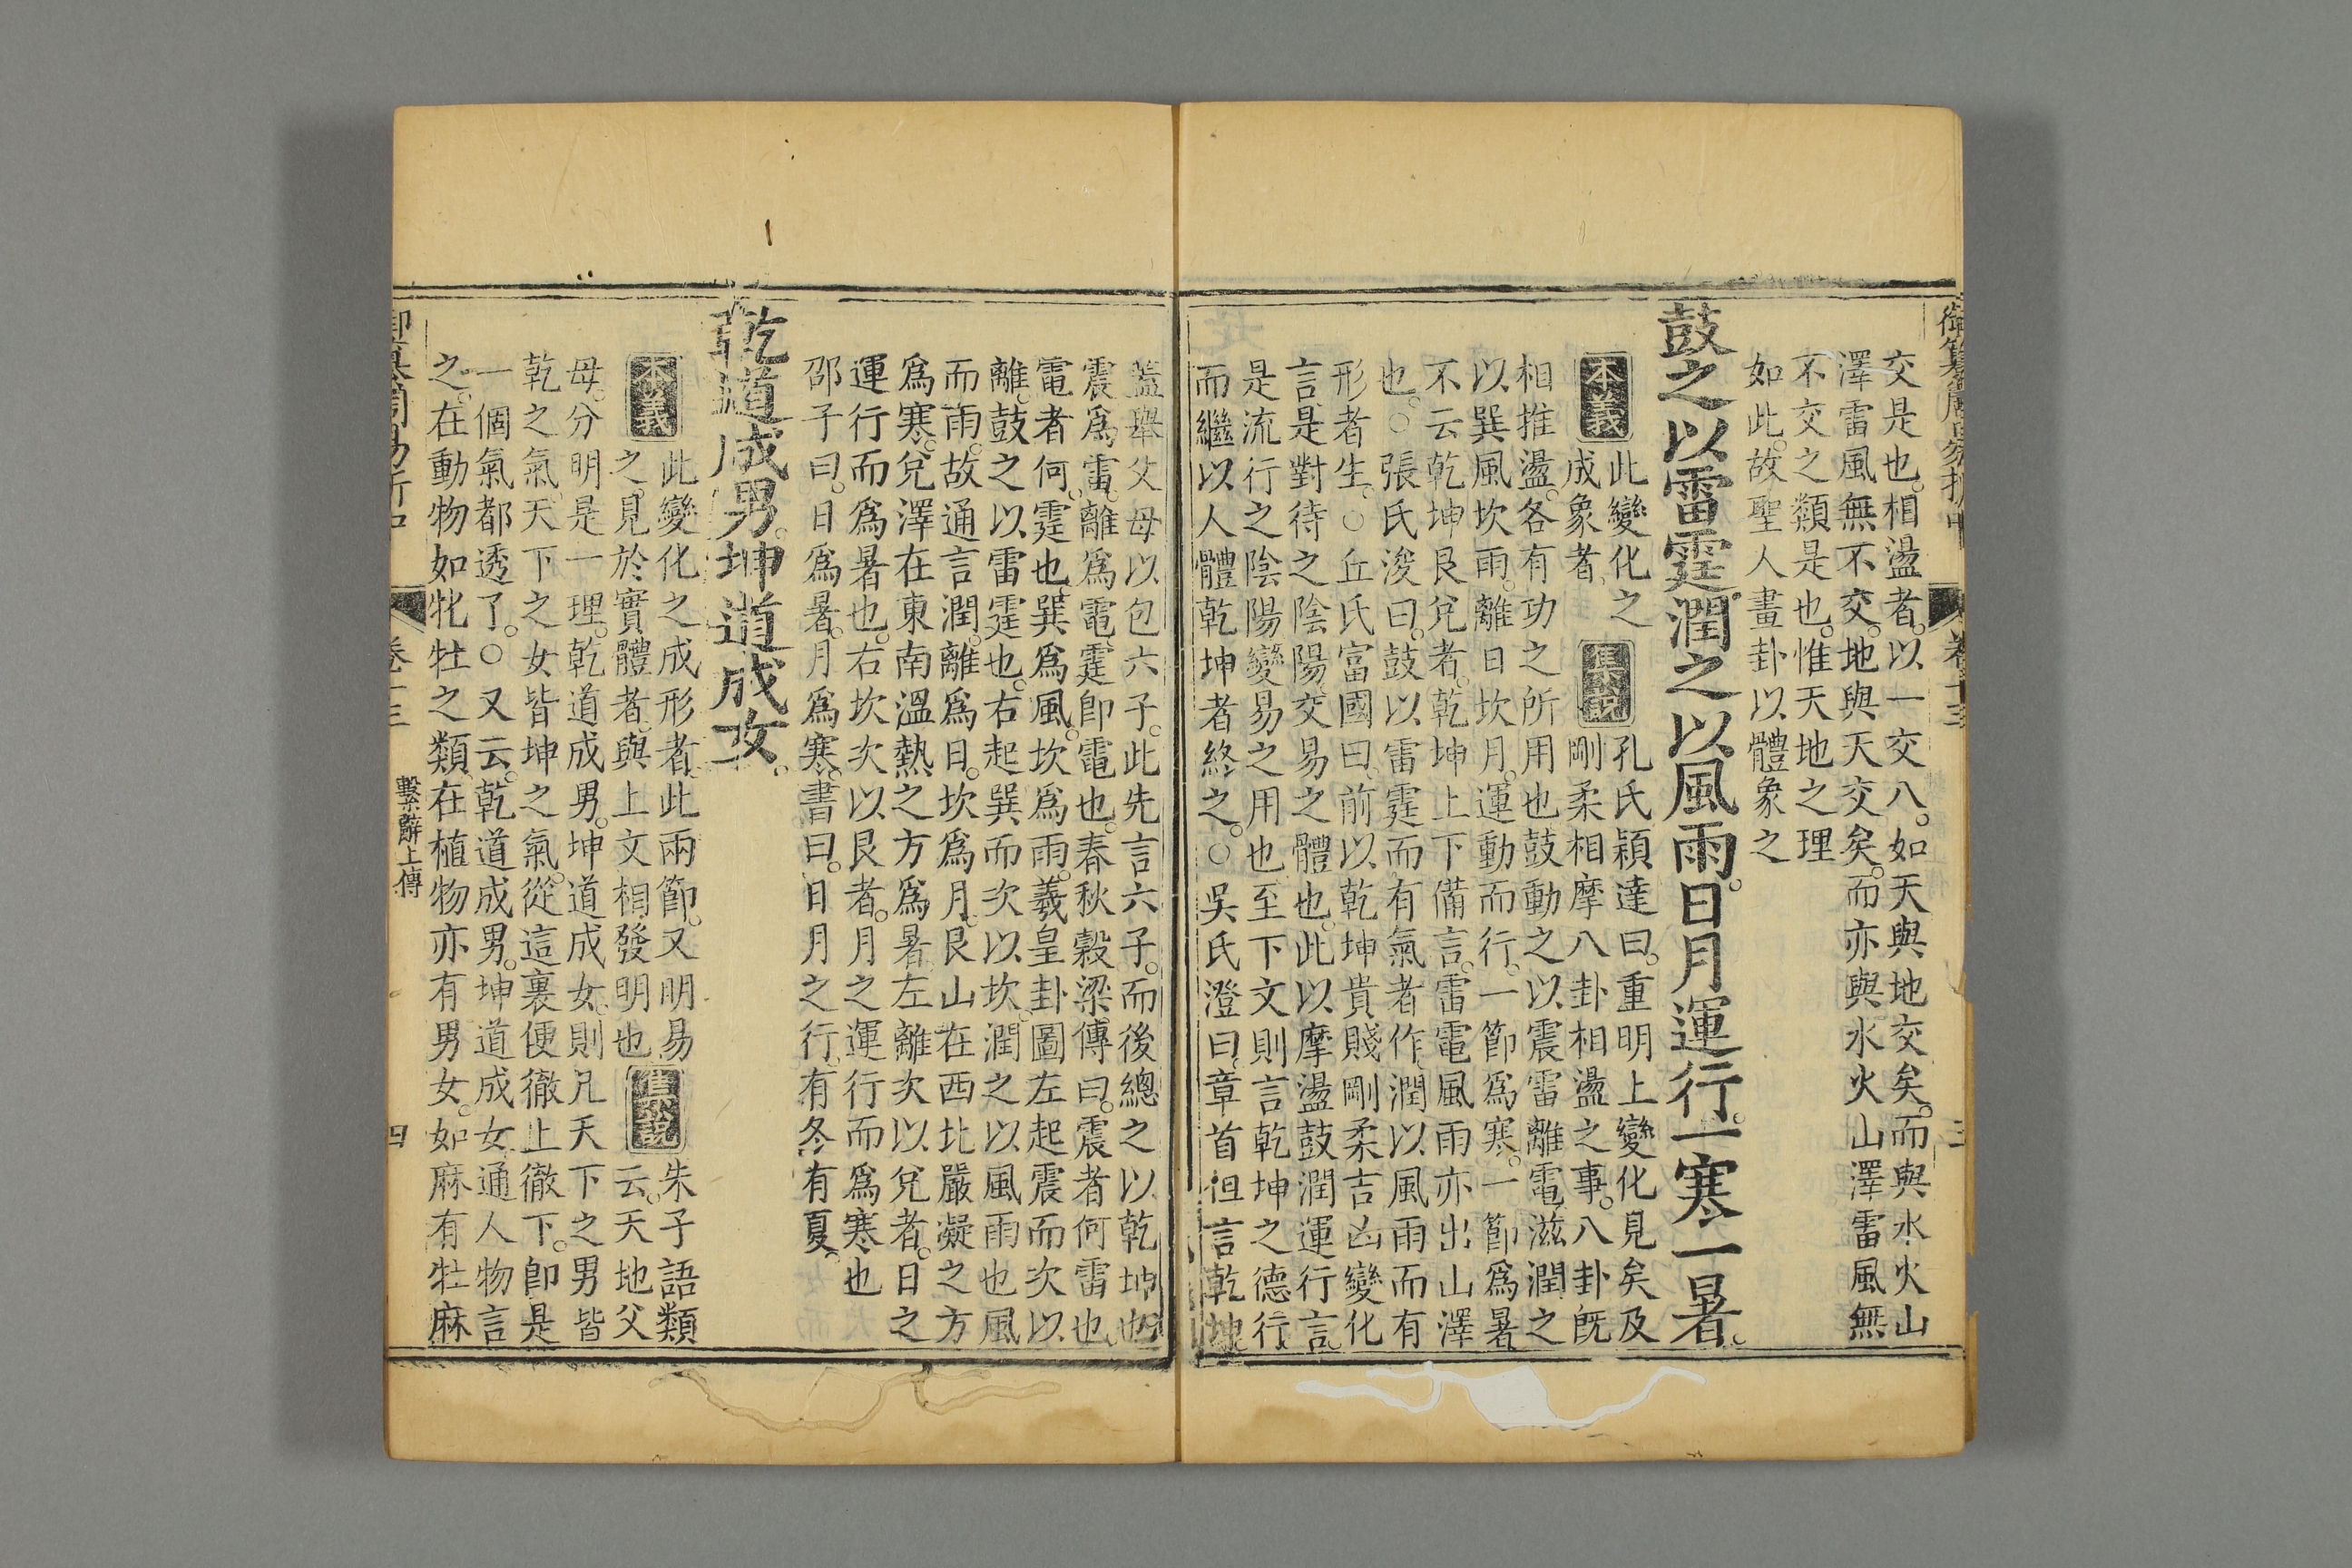 御纂周易折中 卷十三 三
交是也。相盪者。以一交八。如天與地交矣。而與水火山
澤雷風無不交。地與天交矣。而亦與水火山澤雷風無
不交之類是也。惟天地之理
如此。故聖人畫卦以體象之
鼓之以雷霆。潤之以風雨。日月運行。一寒一暑。
本義
此變化之
成象者、
集說
孔氏穎達曰。重明上變化見矣及
剛柔相摩八卦相盪之事。八卦既
相推盪。各有功之所用也鼓動之以震雷離電滋潤之
以巽風坎雨。離日坎月。運動而行。一節爲寒。一節爲暑
不云乾坤艮兌者。乾坤上下備言。雷電風雨亦出山澤
也。○張氏浚曰。鼓以雷霆而有氣者作。潤以風雨而有
形者生。○丘氏富國曰。前以乾坤貴賤剛柔吉凶變化
言是對待之陰陽交易之體也。此以摩盪鼓潤運行言。
是流行之陰陽變易之用也至下文則言乾坤之德行
而繼以人體乾坤者終之。○吳氏澄曰。章首但言乾坤。
蓋舉父母以包六子。此先言六子。而後總之以乾坤也
震爲雷。離爲電霆卽電也。春秋穀梁傳曰。震者何雷也。
電者何。霆也。巽爲風。坎爲雨。羲皇卦圖左起震而次以
離。鼓之以雷霆也。右起巽而次以坎。潤之以風雨也風
而雨。故通言潤。離爲日。坎爲月。艮山在西北嚴凝之方
爲寒。兌澤在東南溫熱之方爲暑。左離次以兌者。日之
運行而爲暑也。右坎次以艮者。月之運行而爲寒也
邵子曰。日爲暑。月爲寒。書曰。日月之行。有冬有夏、
乾道成男。坤道成女。
本義
此變化之成形者。此兩節。又明易
之。見於實體者、與上文相發明也
集說
朱子語類
云。天地父
母。分明是一理。乾道成男。坤道成女。則凡天下之男皆
乾之氣。天下之女皆坤之氣。從這裏便徹上徹下。卽是
一個氣都透了。○又云。乾道成男。坤道成女通人物言
之。在動物如牝牡之類在植物亦有男女。如麻有牡麻
御纂周易折中 卷十三 繫辭上傳 四